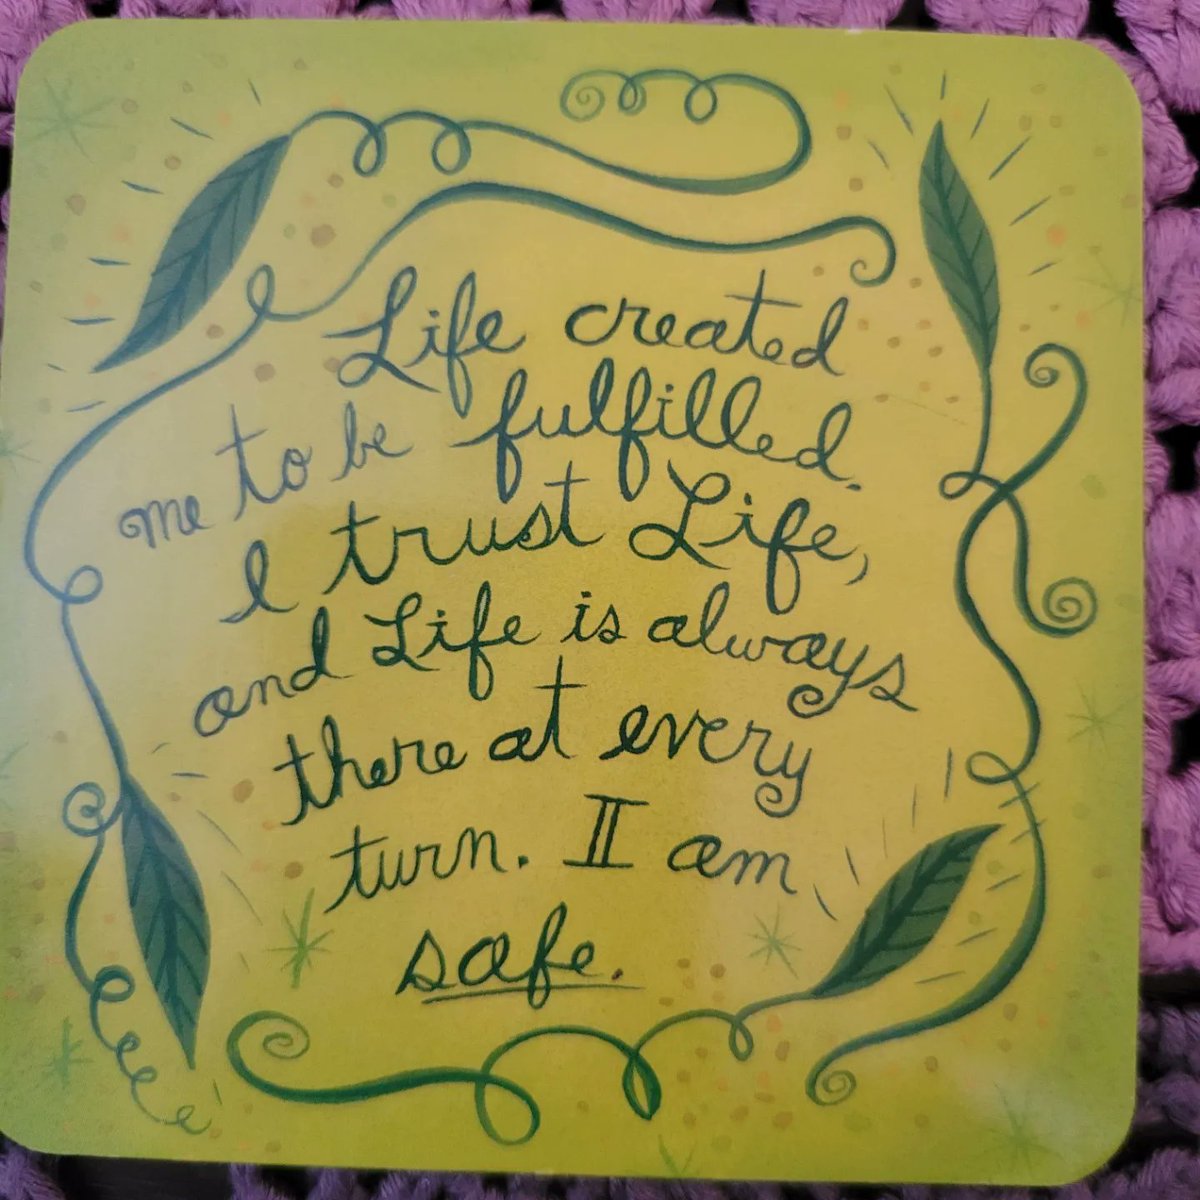 Life created
me to be fulfilled.
I trust Life,
and Life is always
there at every
turn. I am
safe.